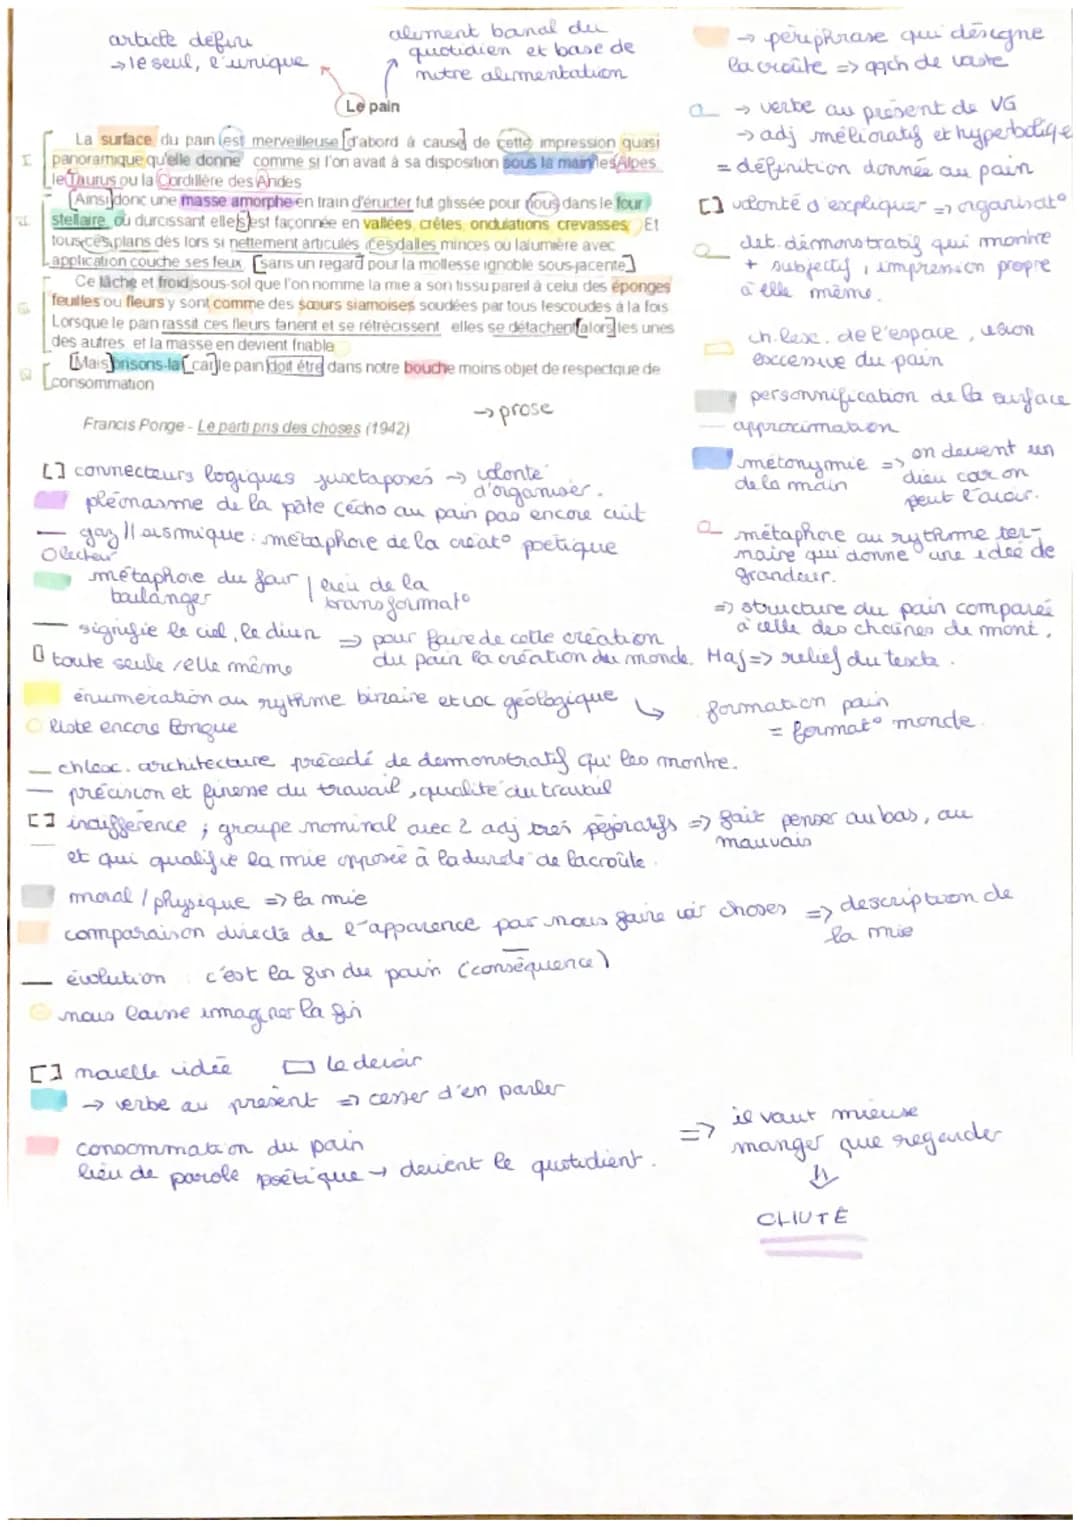 article défini
→ le seul, l'unique
aliment banal du
quotidien et base de
notre alimentation
Le pain
La surface du pain est merveilleuse d'abord à cause de cette impression quasi
panoramique qu'elle donne comme si l'on avait à sa disposition sous la main les Alpes
le Taurus ou la Cordillère des Andes
Ainsi donc une masse amorphe en train d'éructer fut glissée pour nous dans le four
stellaire où durcissant elle s'est façonnée en vallées, crêtes, ondulations crevasses Et
tous ces plans dès lors si nettement articulés ces dalles minces où la lumière avec
application couche ses feux [sans un regard pour la mollesse ignoble sous-jacente]
Ce lâche et froid sous-sol que l'on nomme la mie a son tissu pareil à celui des éponges
feuilles ou fleurs y sont comme des sœurs siamoises soudées par tous les coudes à la fois
Lorsque le pain rassit ces fleurs fanent et se rétrécissent elles se détachent alors les unes
des autres et la masse en devient friable
[Mais] brisons-la [car] le pain doit être dans notre bouche moins objet de respect que de
consommation
Francis Ponge - Le parti pris des choses (1942)
→ prose
→ périphrase qui désigne
la croûte => qqch de vaste
→ verbe au présent de VG
→ adj mélioratif et hyperbolique
= définition donnée au pain
[] volonté d'expliquer => organisat°
det. démonstratif qui montre
+ subjectif, impression propre
à elle même.
ch. lex. de l'espace, vision
excessive du pain
personnification de la surface
approximation
métonymie =>
de la main
on devient un
dieu car on
peut l'avoir.
métaphore au rythme ter-
naire qui donne une idée de
grandeur.
=> structure du pain comparée
à celle des chaînes de mont.
Maj => relief du texte.
[] connecteurs logiques juxtaposés → volonté
d'organiser.
pléonasme de la pâte (écho au pain pas encore cuit
gaz // sismique : métaphore de la créat° poétique
O lecteur
métaphore du four | lieu de la
boulanger transformat°
signifie le ciel, le divin => pour faire de cette création
du pain la création du monde.
toute seule / elle même
énumération au rythme binaire et voc géologique
formation pain
= format° monde.
liste encore longue
ch lexc. architecture précédé de demonstratif qui les montre.
précision et finesse du travail, qualité du travail
[] indifférence ; groupe nominal avec 2 adj très péjoratifs => fait penser au bas, au
mauvais
et qui qualifie la mie opposée à la dureté de la croûte.
moral / physique => la mie
comparaison directe de l'apparence par nous faire voir choses => description de
la mie
évolution c'est la fin du pain (conséquence)
nous laisse imaginer la fin
[] nouvelle idée
le devoir
→ verbe au présent => cesser d'en parler
consommation du pain
lieu de parole poétique → devient le quotidient.
=> il vaut mieux
manger que regarder
CLIUTÉ